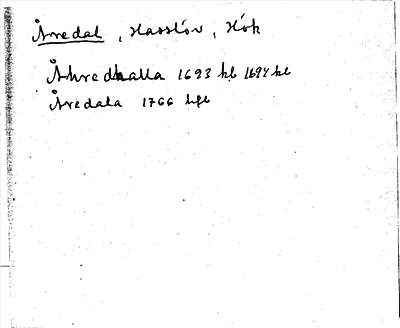 Åredal, Hasslöv, Hök
Åhredhalla 1693 kl 1694 kl
Åredala 1766 hfl